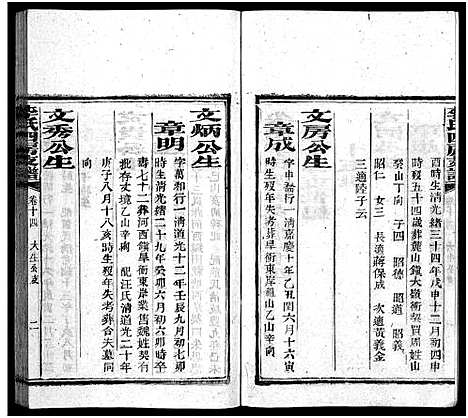 李氏四房支譜
酉時生清光緒三十四年戊申十二月初四申
時歿五十四歲葬麓山鎮大嶺衝東岸業
癸山丁向　子四　昭德　昭道　昭義
昭仁　女三　長適蔣保成　次適黃義金
三適陸子云
文房公生
章成
字申論行一清嘉慶十年乙丑閏六月十六寅
時生歿年失考葬旱衝東岸嶺山乙山辛向
文炳公生
章明
字萬和行一清道光十二年壬辰九月初七卯
時生歿光緒二十九年癸卯六月初六卯時卒
壽七十二葬河西鎮旱衝東岸業售魏姓契有
批存文墳乙山辛向　配汪氏清道光二十年
庚子八月十八亥時生歿年失考葬合朱墓同
向
文秀公生
李氏四房支譜
卷十四